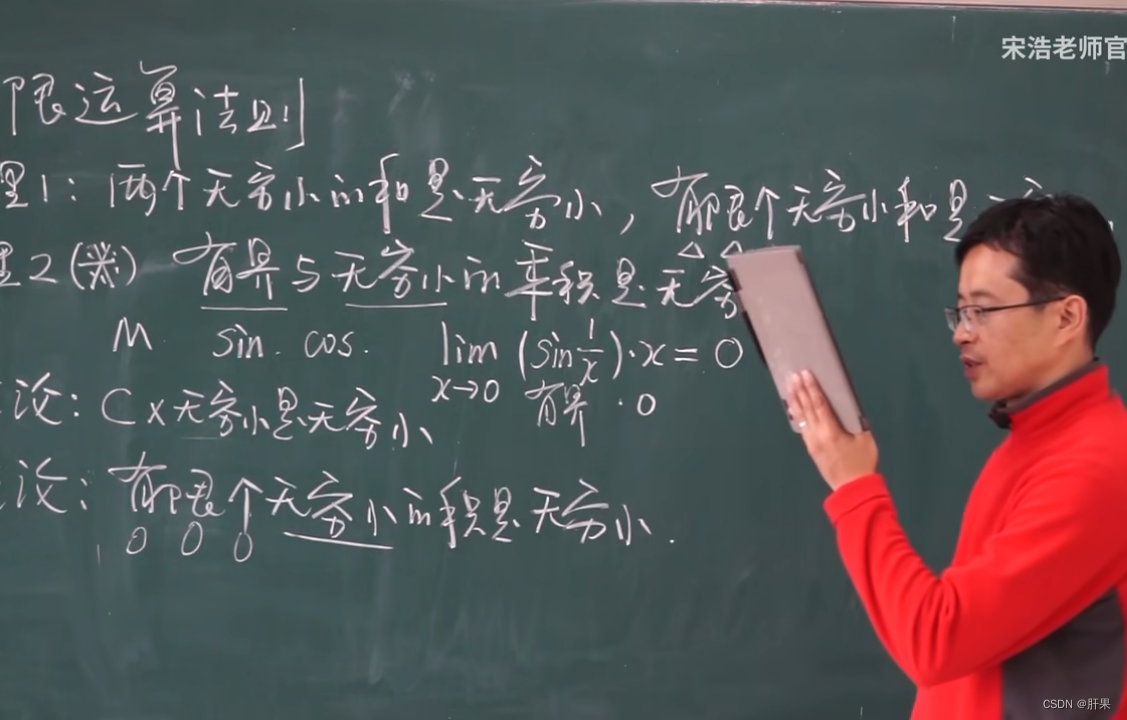 宋浩老师官
限运算法则
理1：两个无穷小的和是无穷小，有限个无穷小和是无穷
理2(※) 有界与无穷小的乘积是无穷
M sin. cos. lim (sin 1/x)·x = 0
x→0 有界 · 0
论：C×无穷小是无穷小
论：有限个无穷小的积是无穷小.
0 0 0
CSDN @肝果